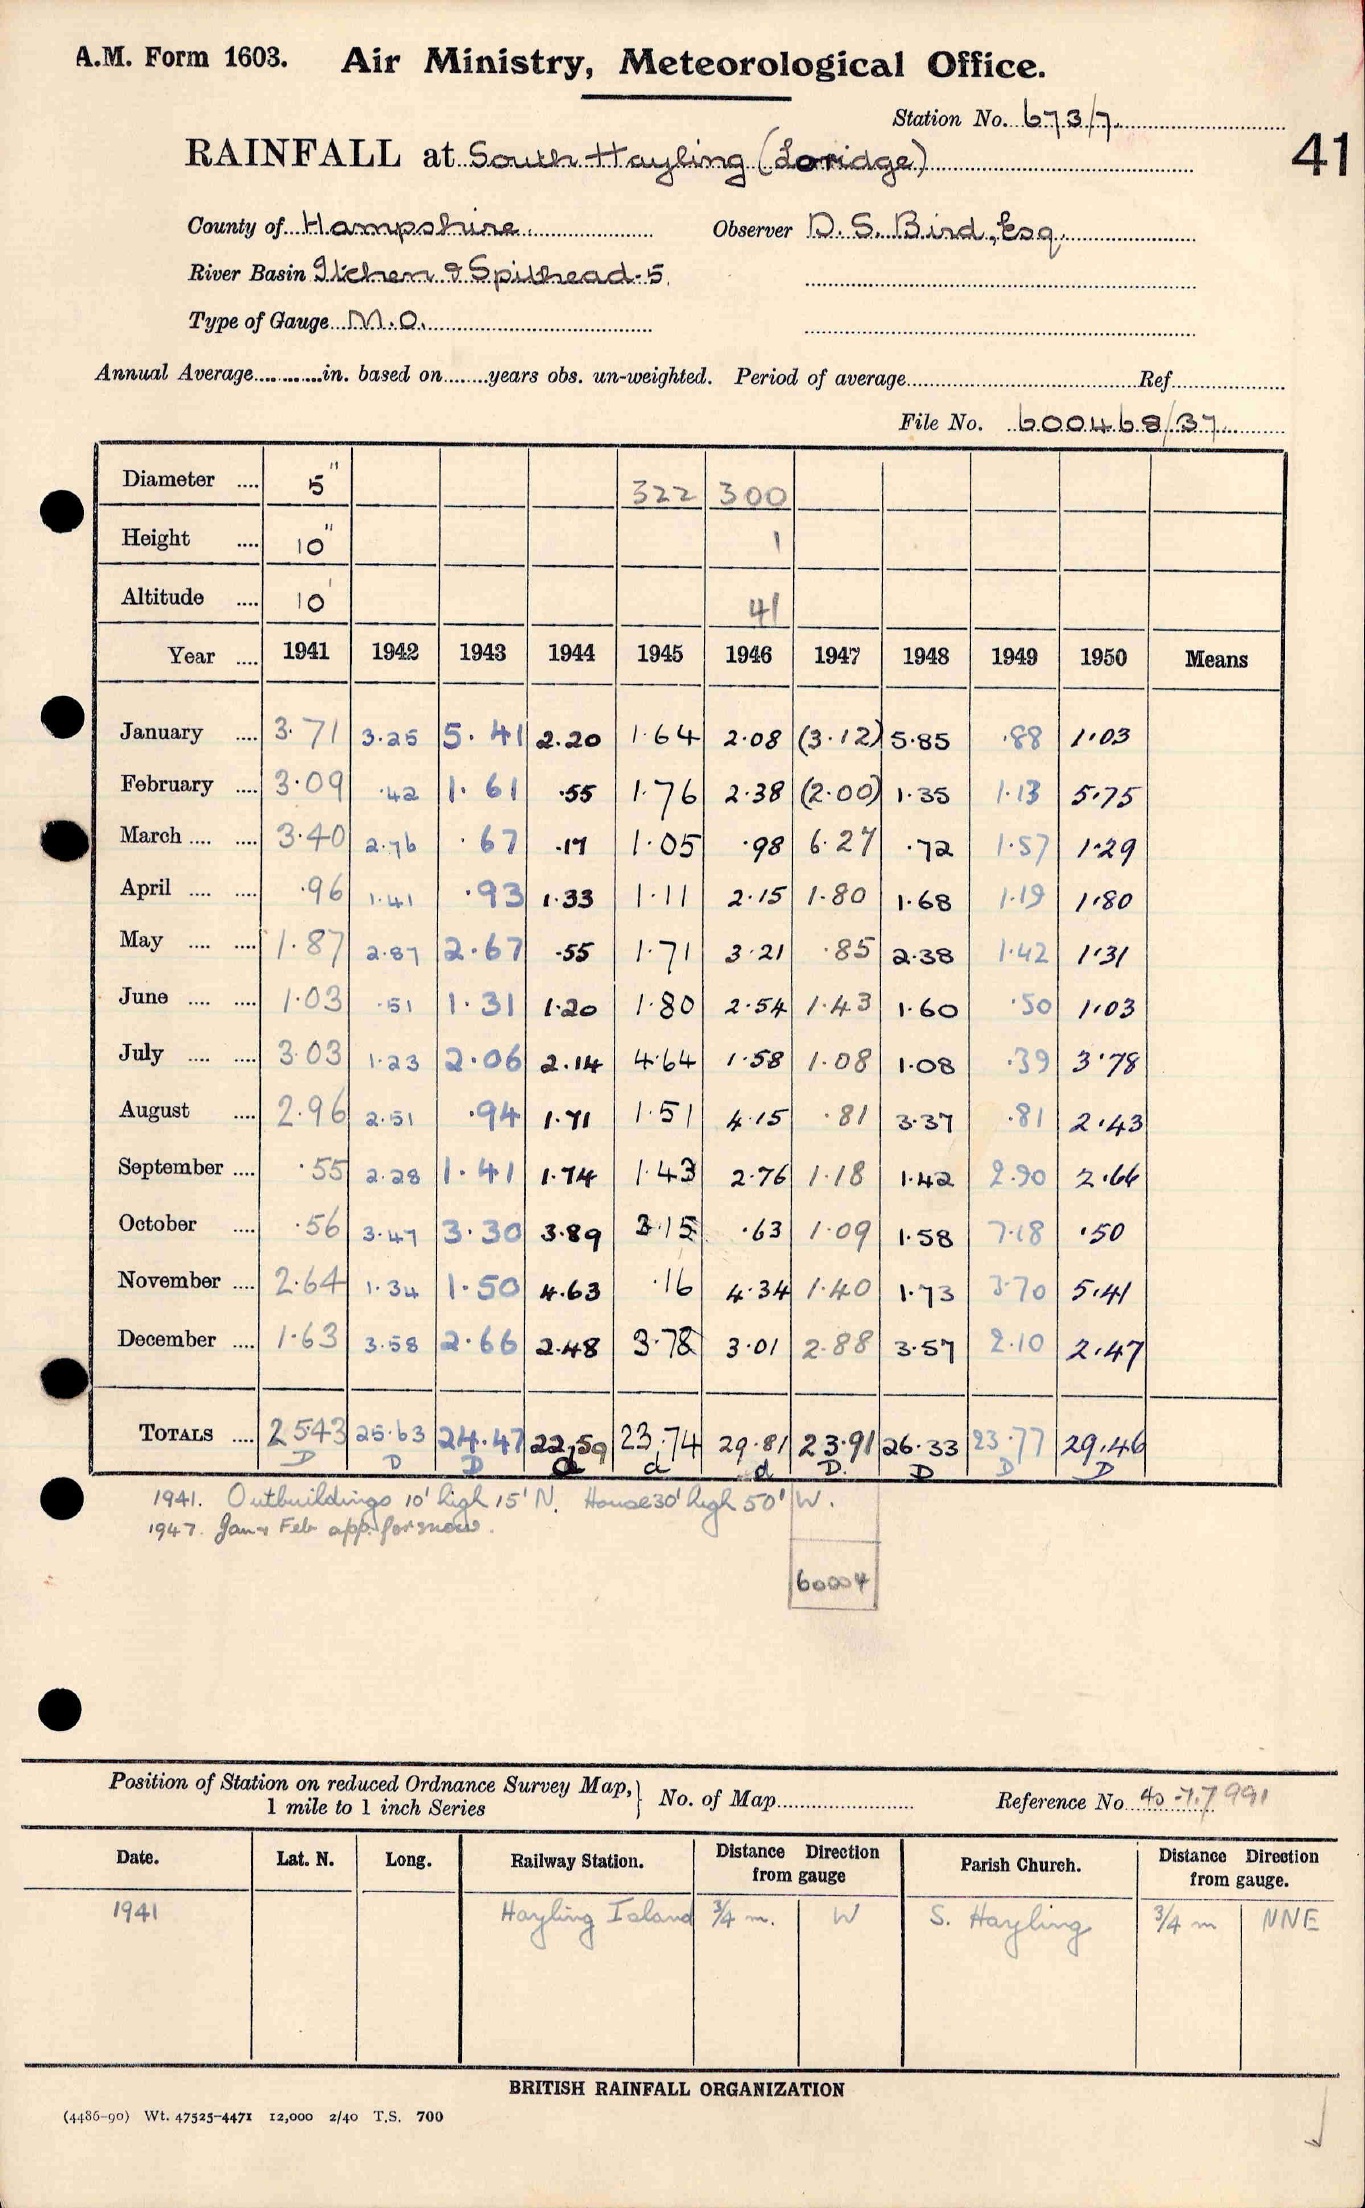 A.M. Form 1603. Air Ministry, Meteorological Office.
Station No. 673/7.
41
RAINFALL at South Hayling (Loridge)
County of Hampshire. Observer D. S. Bird, Esq.
River Basin Itchen & Spithead. 5.
Type of Gauge M.O.
Annual Average............in. based on........years obs. un-weighted. Period of average.......... Ref..........
File No. 600468/37
Diameter .... 5" 322 300
Height .... 10" 1
Altitude .... 10' 41
Year .... 1941 1942 1943 1944 1945 1946 1947 1948 1949 1950 Means
January .... 3.71 3.25 5.41 2.20 1.64 2.08 (3.12) 5.85 .88 1.03
February .... 3.09 .42 1.61 .55 1.76 2.38 (2.00) 1.35 1.13 5.75
March .... .... 3.40 2.76 .67 .17 1.05 .98 6.27 .72 1.57 1.29
April .... .... .96 1.41 .93 1.33 1.11 2.15 1.80 1.68 1.19 1.80
May .... .... 1.87 2.87 2.67 .55 1.71 3.21 .85 2.38 1.42 1.31
June .... .... 1.03 .51 1.31 1.20 1.80 2.54 1.43 1.60 .50 1.03
July .... .... 3.03 1.23 2.06 2.14 4.64 1.58 1.08 1.08 .39 3.78
August .... 2.96 2.51 .94 1.71 1.51 4.15 .81 3.37 .81 2.43
September .... .55 2.28 1.41 1.74 1.43 2.76 1.18 1.42 2.90 2.66
October .... .56 3.47 3.30 3.89 3.15 .63 1.09 1.58 7.18 .50
November .... 2.64 1.34 1.50 4.63 .16 4.34 1.40 1.73 3.70 5.41
December .... 1.63 3.58 2.66 2.48 3.78 3.01 2.88 3.57 2.10 2.47
TOTALS .... 25.43 25.63 24.47 22.59 23.74 29.81 23.91 26.33 23.77 29.46
D D D d d d D. D D D
1941. Outbuildings 10' high 15' N. House 30' high 50' W.
1947. Jan & Feb app. for snow.
60004
Position of Station on reduced Ordnance Survey Map, 1 mile to 1 inch Series } No. of Map.......... Reference No. 40-717991
Date. Lat. N. Long. Railway Station. Distance Direction from gauge Parish Church. Distance Direction from gauge.
1941 Hayling Island 3/4 m. W S. Hayling 3/4 m NNE
BRITISH RAINFALL ORGANIZATION
(4486-90) Wt. 47525-4471 12,000 2/40 T.S. 700